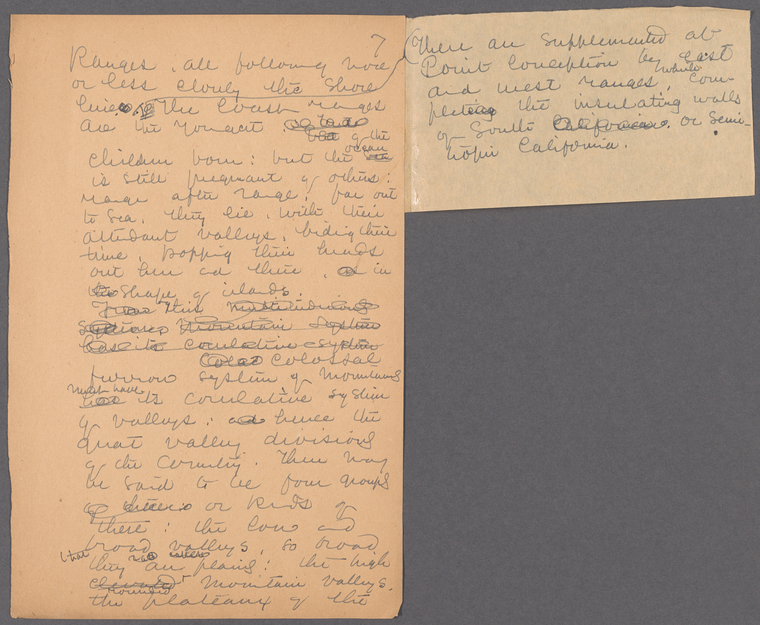 7
Ranges, all following more
or less closely the Shore
line. The Coast ranges
are the youngest
of the
children born: but the ocean
is still pregnant of others:
range after range, far out
to sea, they lie, with their
attendant valleys, biding their
time, popping their heads
out here and there, in
shape of islands.
This
mountain system
correlative system
Colossal
furrow system of mountains
must have its correlative system
of valleys: hence the
great valley divisions
of the country. These may
be said to be four groups
or kinds of
these: the low and
broad valleys, so broad
that they are plains: the high
mountain valleys,
rounded
the plateaux of the
(There are supplemented at
Point Conception by East
and west ranges, while
com-
pleting the insulating walls
of South California. or Semi-
tropic California.